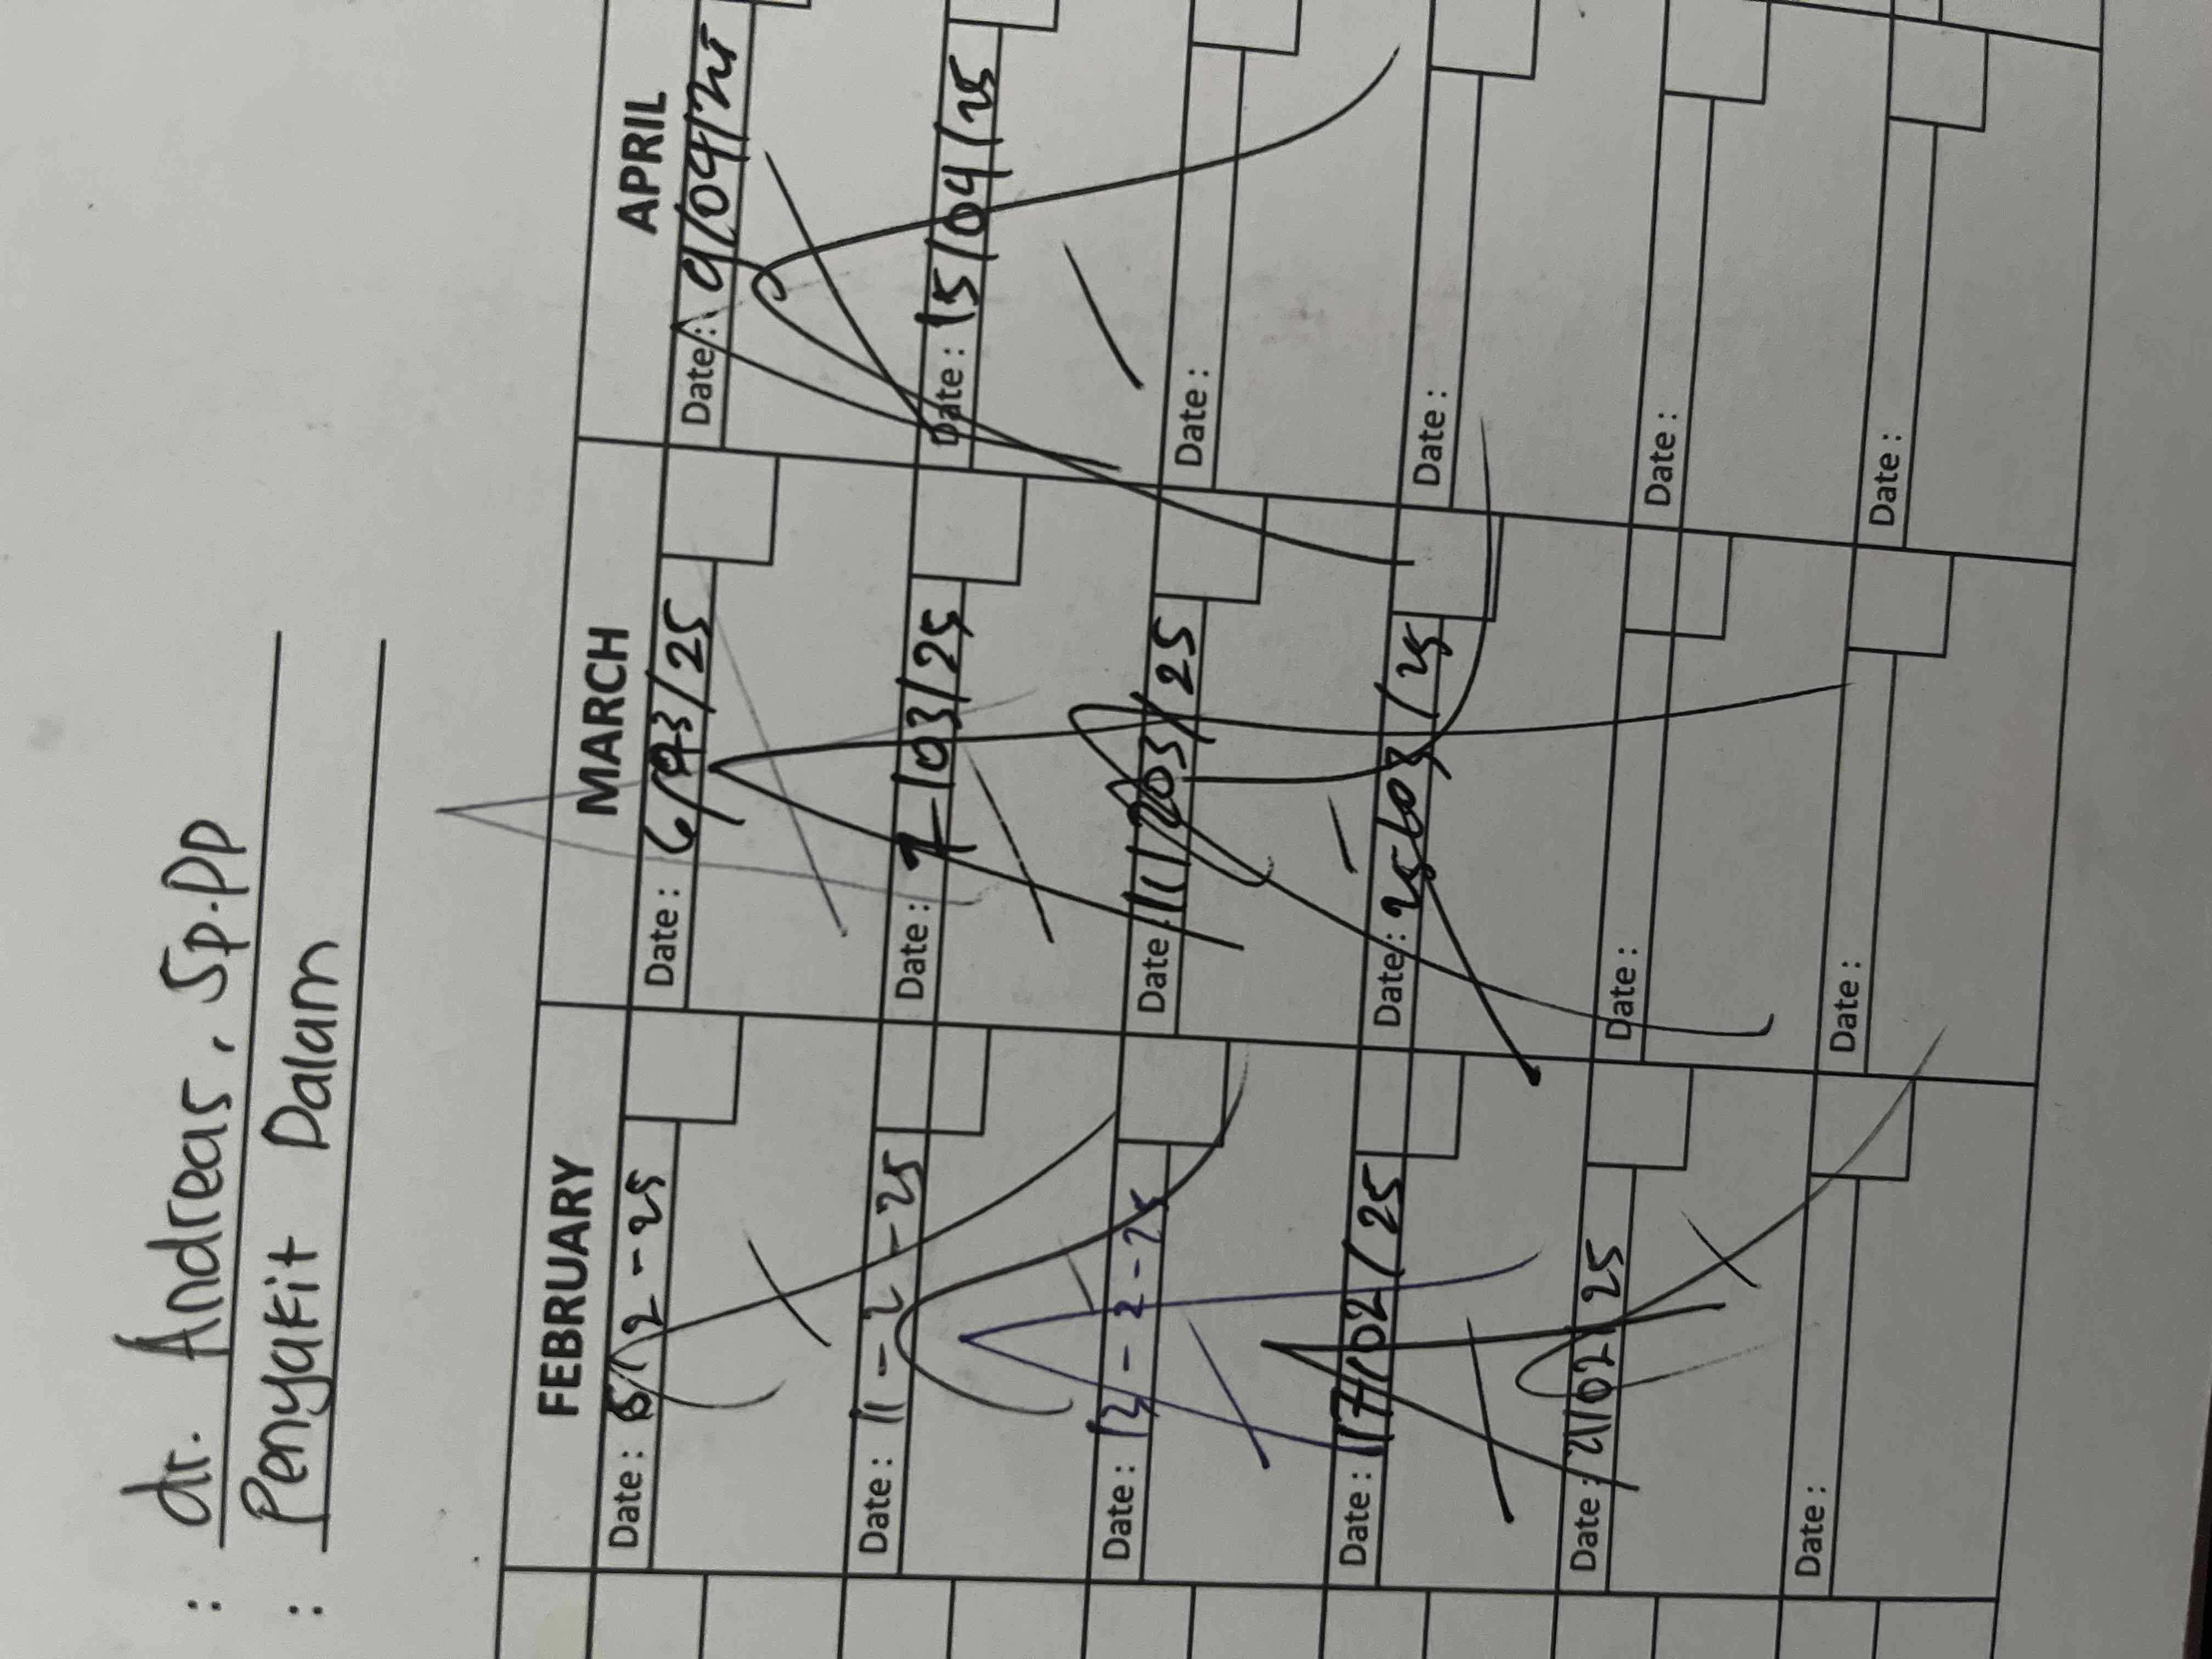 : dr. Andreas, Sp.PD
: Penyakit Dalam
FEBRUARY MARCH APRIL
Date: 2-25 Date: 6/03/25 Date: 9/04/25
Date: 11-2-25 Date: 7/03/25 Date: 15/04/25
Date: 13-2-25 Date: 11/03/25 Date:
Date: 17/02/25 Date: 25/03/25 Date:
Date: 21/02/25 Date: Date:
Date: Date: Date: